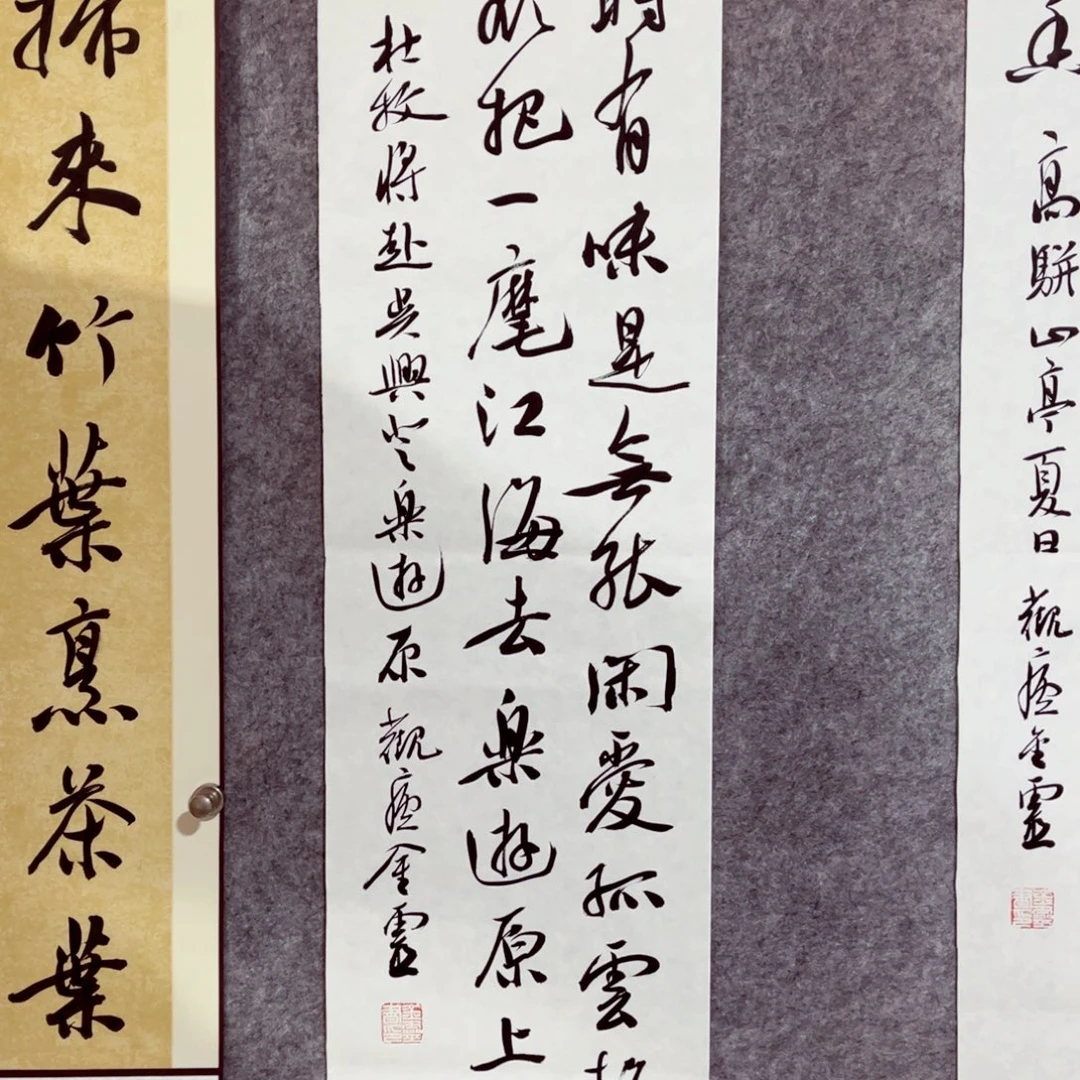 香高駢山亭夏日 觀金靈
時有味是無能閑愛孤雲
欲把一麾江海去樂遊原上
杜牧將赴吳興登樂遊原 觀金靈
掃來竹葉烹茶葉